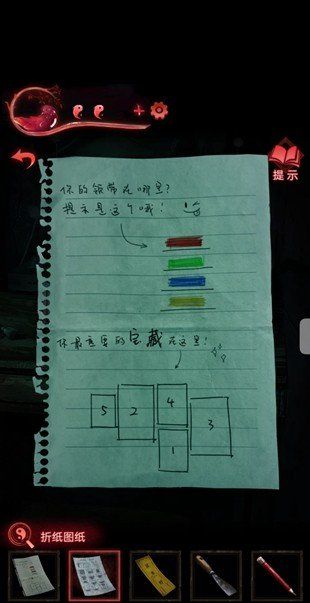 提示
你的领带在哪里?
提示是这个哦!
你最重要的宝藏在这里!
5
2
4
3
1
折纸图纸